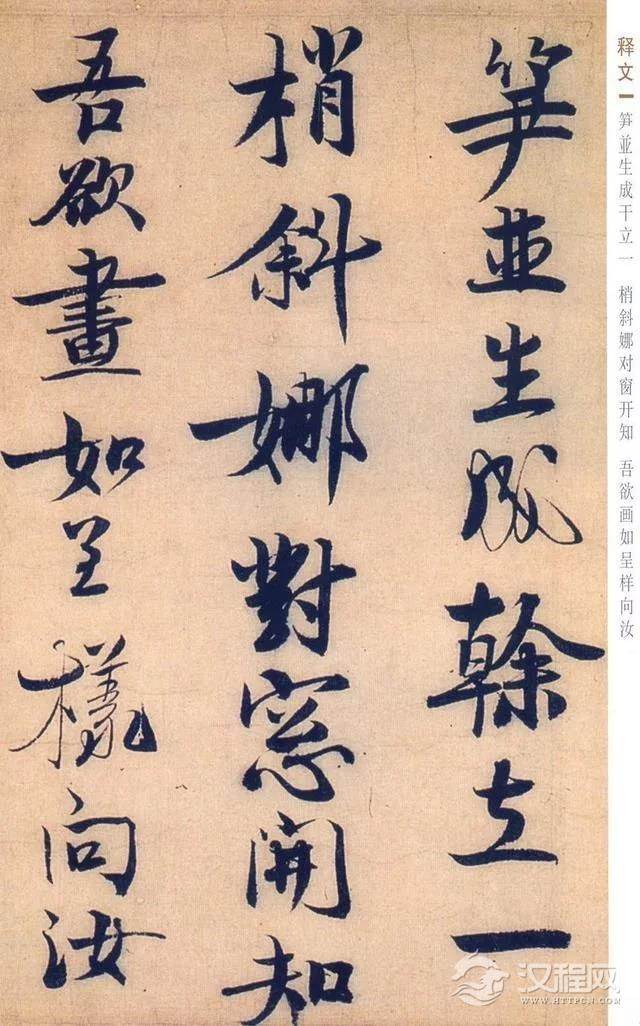 笋並生成幹立一
梢斜娜對窓開知
吾欲畫如呈樣向汝
释文 笋並生成干立一 梢斜娜对窗开知 吾欲画如呈样向汝
汉程网
WWW.HTTPCN.COM